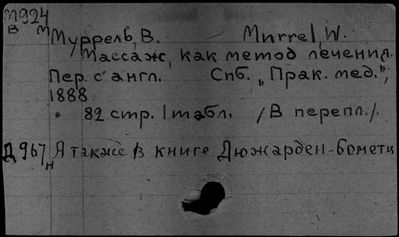 М924
В М
Муррель, В. Murrel, W.
Массаж, как метод лечения.
Пер. с англ. Спб. „Прак. мед.",
1888
82 стр. 1 табл. /В перепл./.
Д967 н А также в книге Дюжарден-Бометц